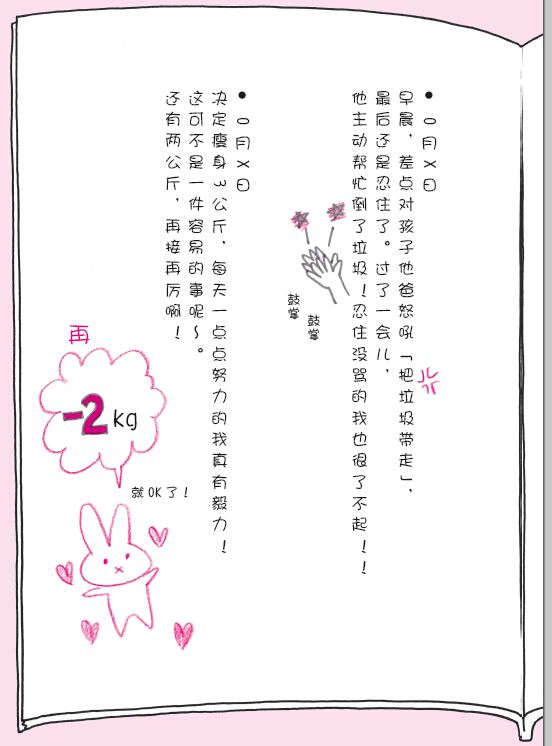 ● 0月X日
早晨，差点对孩子他爸怒吼「把垃圾带走」，
最后还是忍住了。过了一会儿，
他主动帮忙倒了垃圾！忍住没骂的我也很了不起！！
鼓掌
鼓掌
● 0月X日
决定瘦身3公斤，每天一点点努力的我真有毅力！
这可不是一件容易的事呢～。
还有两公斤，再接再厉啊！
再
-2kg
就OK了！